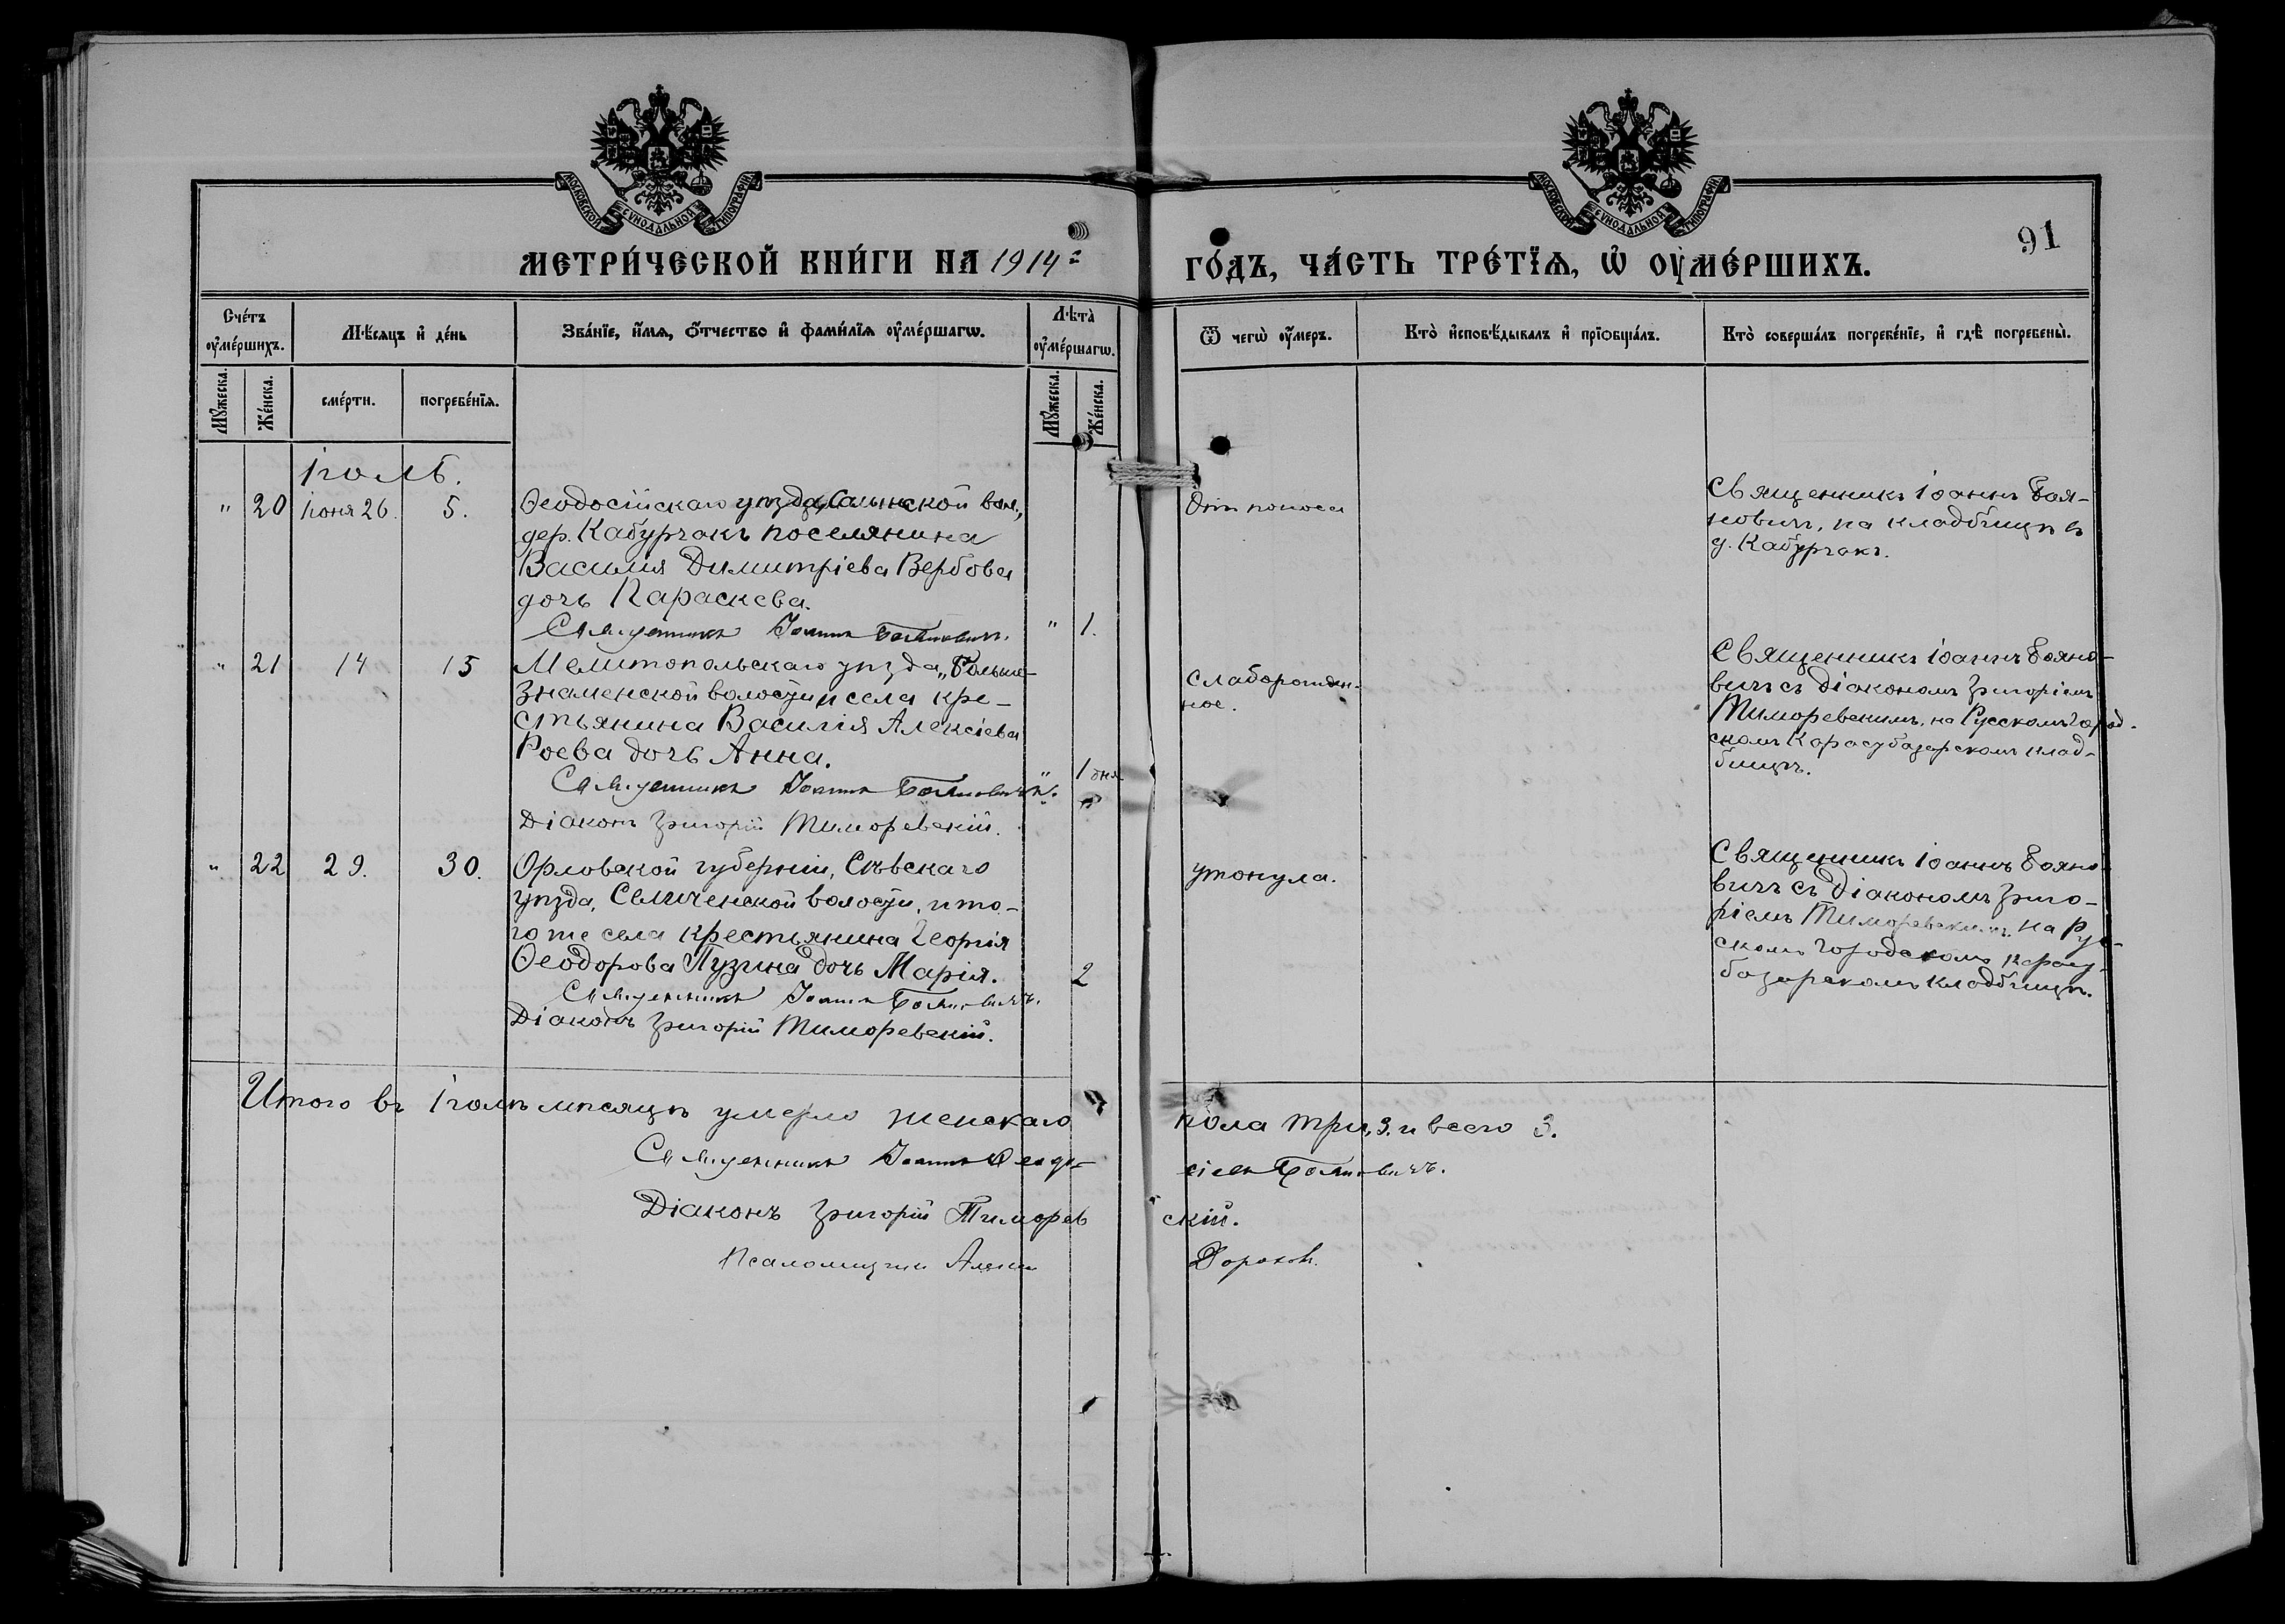 МОСКОВСКОЙ СѴНОДАЛЬНОЙ ТИПОГРАФІИ
МОСКОВСКОЙ СѴНОДАЛЬНОЙ ТИПОГРАФІИ
91
МЕТРИ́ЧЕСКОЙ КНИ́ГИ НА 1914 г
ГО́ДЪ, ЧА́СТЬ ТРЕ́ТЇѦ, Ѡ҆ ОУ҆МЕ́РШИХЪ.
Сче́тъ оу҆ме́ршихъ.
Мѣ́сѧцъ и҆ де́нь
Зва́нїе, и҆́мѧ, ѻ҆́тчество и҆ фами́лїѧ оу҆ме́ршагѡ.
Лѣта̀ оу҆ме́ршагѡ.
Ѿ чегѡ̀ оу҆́меръ.
Кто̀ и҆сповѣ́дывалъ и҆ прїѡбща́лъ.
Кто̀ соверша́лъ погребе́нїе, и҆ гдѣ̀ погребены̀.
Мꙋ́жеска.
Же́нска.
сме́рти.
погребе́нїѧ.
Мꙋ́жеска.
Же́нска.
Іюль.
" 20 Іюня 26. 5.
Ѳеодосійскаго уѣзда, Салынской вол.,
дер. Кабурчакъ поселянина
Василія Димитріева Вербова
дочь Параскева.
Священникъ Іоаннъ Бояновичъ.
" 1.
Отъ поноса
Священникъ Іоаннъ Боя-
новичъ, на кладбищѣ въ
д. Кабурчакъ.
" 21 14 15
Мелитопольскаго уѣзда, Больше-
Знаменской волости и села кре-
стьянина Василія Алексіева
Роева дочь Анна.
Священникъ Іоаннъ Бояновичъ.
Діаконъ Григорій Тиморевскій.
" 1 дня
слаборожден-
ное.
Священникъ Іоаннъ Бояно-
вичъ съ діакономъ Григоріемъ
Тиморевскимъ, на Русскомъ город-
скомъ Карасубазарскомъ клад-
бищѣ.
" 22 29. 30.
Орловской губерніи, Сѣвскаго
уѣзда, Селиченской волости, и то-
го же села крестьянина Георгія
Ѳеодорова Пузина дочь Марія.
Священникъ Іоаннъ Бояновичъ.
Діаконъ Григорій Тиморевскій.
2
утонула.
Священникъ Іоаннъ Бояно-
вичъ съ діакономъ Григо-
ріемъ Тиморевскимъ на Рус-
скомъ городскомъ Карасу-
базарскомъ кладбищѣ.
Итого въ Іюлѣ мѣсяцѣ умерло женскаго пола три, 3. и всего 3.
Священникъ Іоаннъ Ѳеодосіевъ Бояновичъ.
Діаконъ Григорій Тиморевскій.
Псаломщикъ